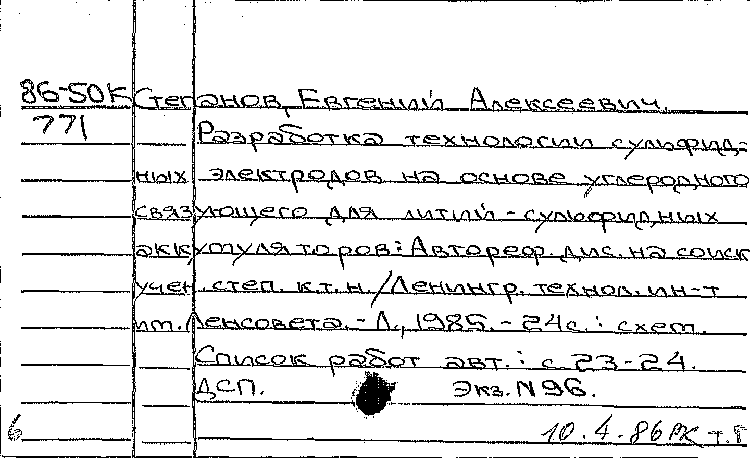 86-50К Степанов, Евгений Алексеевич.
771 Разработка технологии сульфид-
ных электродов на основе углеродного
связующего для литий-сульфидных
аккумуляторов: Автореф. дис. на соиск
учен. степ. к.т.н. / Ленингр. технол. ин-т
им. Ленсовета. - Л., 1985. - 24с.: схем.
Список работ авт.: с. 23-24.
ДСП. Экз. N96.
6 10.4.86 РК т.